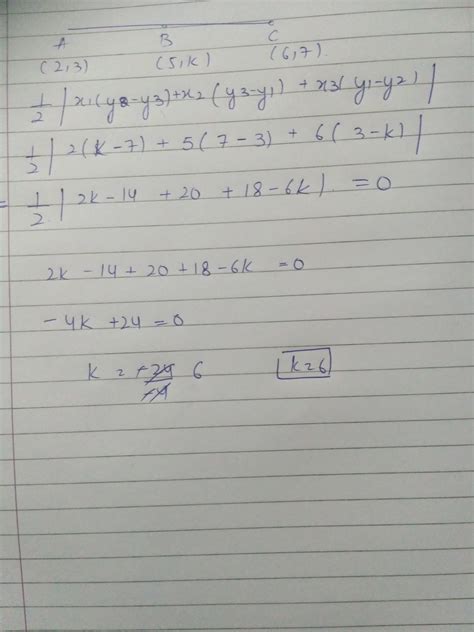 A B C
(2,3) (5,k) (6,7).
1/2 | x1(y2-y3)+x2(y3-y1) + x3(y1-y2) |
1/2 | 2(k-7) + 5(7-3) + 6(3-k) |
= 1/2 | 2k-14 +20 +18-6k | =0
2k -14+20+18-6k =0
-4k +24=0
k = -24/-4 6 k=6